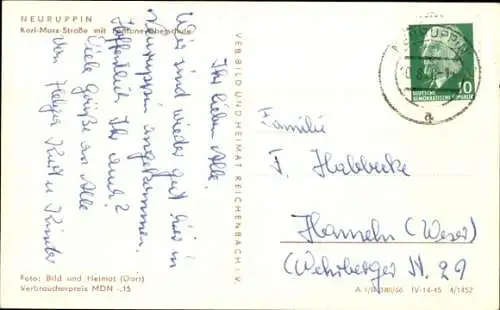 NEURUPPIN
Karl-Marx-Straße mit Fontane-Oberschule
Ihr lieben Alle.
Wir sind wieder gut hier in
Neuruppin angekommen.
Hoffentlich Ihr auch?
Viele Grüße an Alle
von Helga Kurt u. Kinder
Foto: Bild und Heimat (Darr)
Verbraucherpreis MDN -,15
VEB BILD UND HEIMAT REICHENBACH i. V.
NEURUPPIN
a
10
DEUTSCHE
DEMOKRATISCHE REPUBLIK
Familie
F. Habbecke
Hameln (Weser)
Wehrberger N. 29
IV-14-45 4/1452